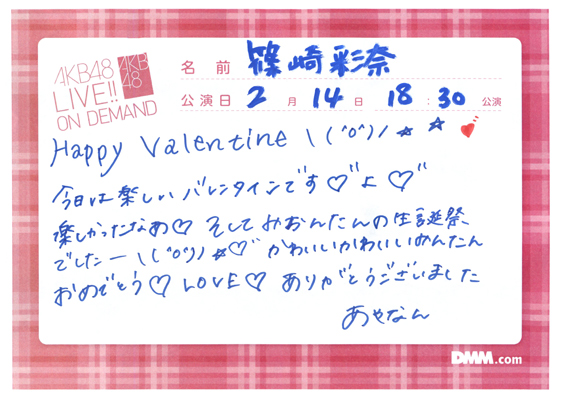 AKB48
LIVE!!
ON DEMAND
AKB
48
名 前 篠崎彩奈
公演日 2 月 14 日 18 : 30 公演
Happy Valentine \(^o^)/☆ ☆
今日は楽しいバレンタインです♡"よ♡"
楽しかったなあ♡ そしてみおんたんの生誕祭
でしたー \(^o^)/☆♡" かわいいかわいいみおんたん
おめでとう♡ LOVE♡ ありがとうございました
あやなん
DMM.com